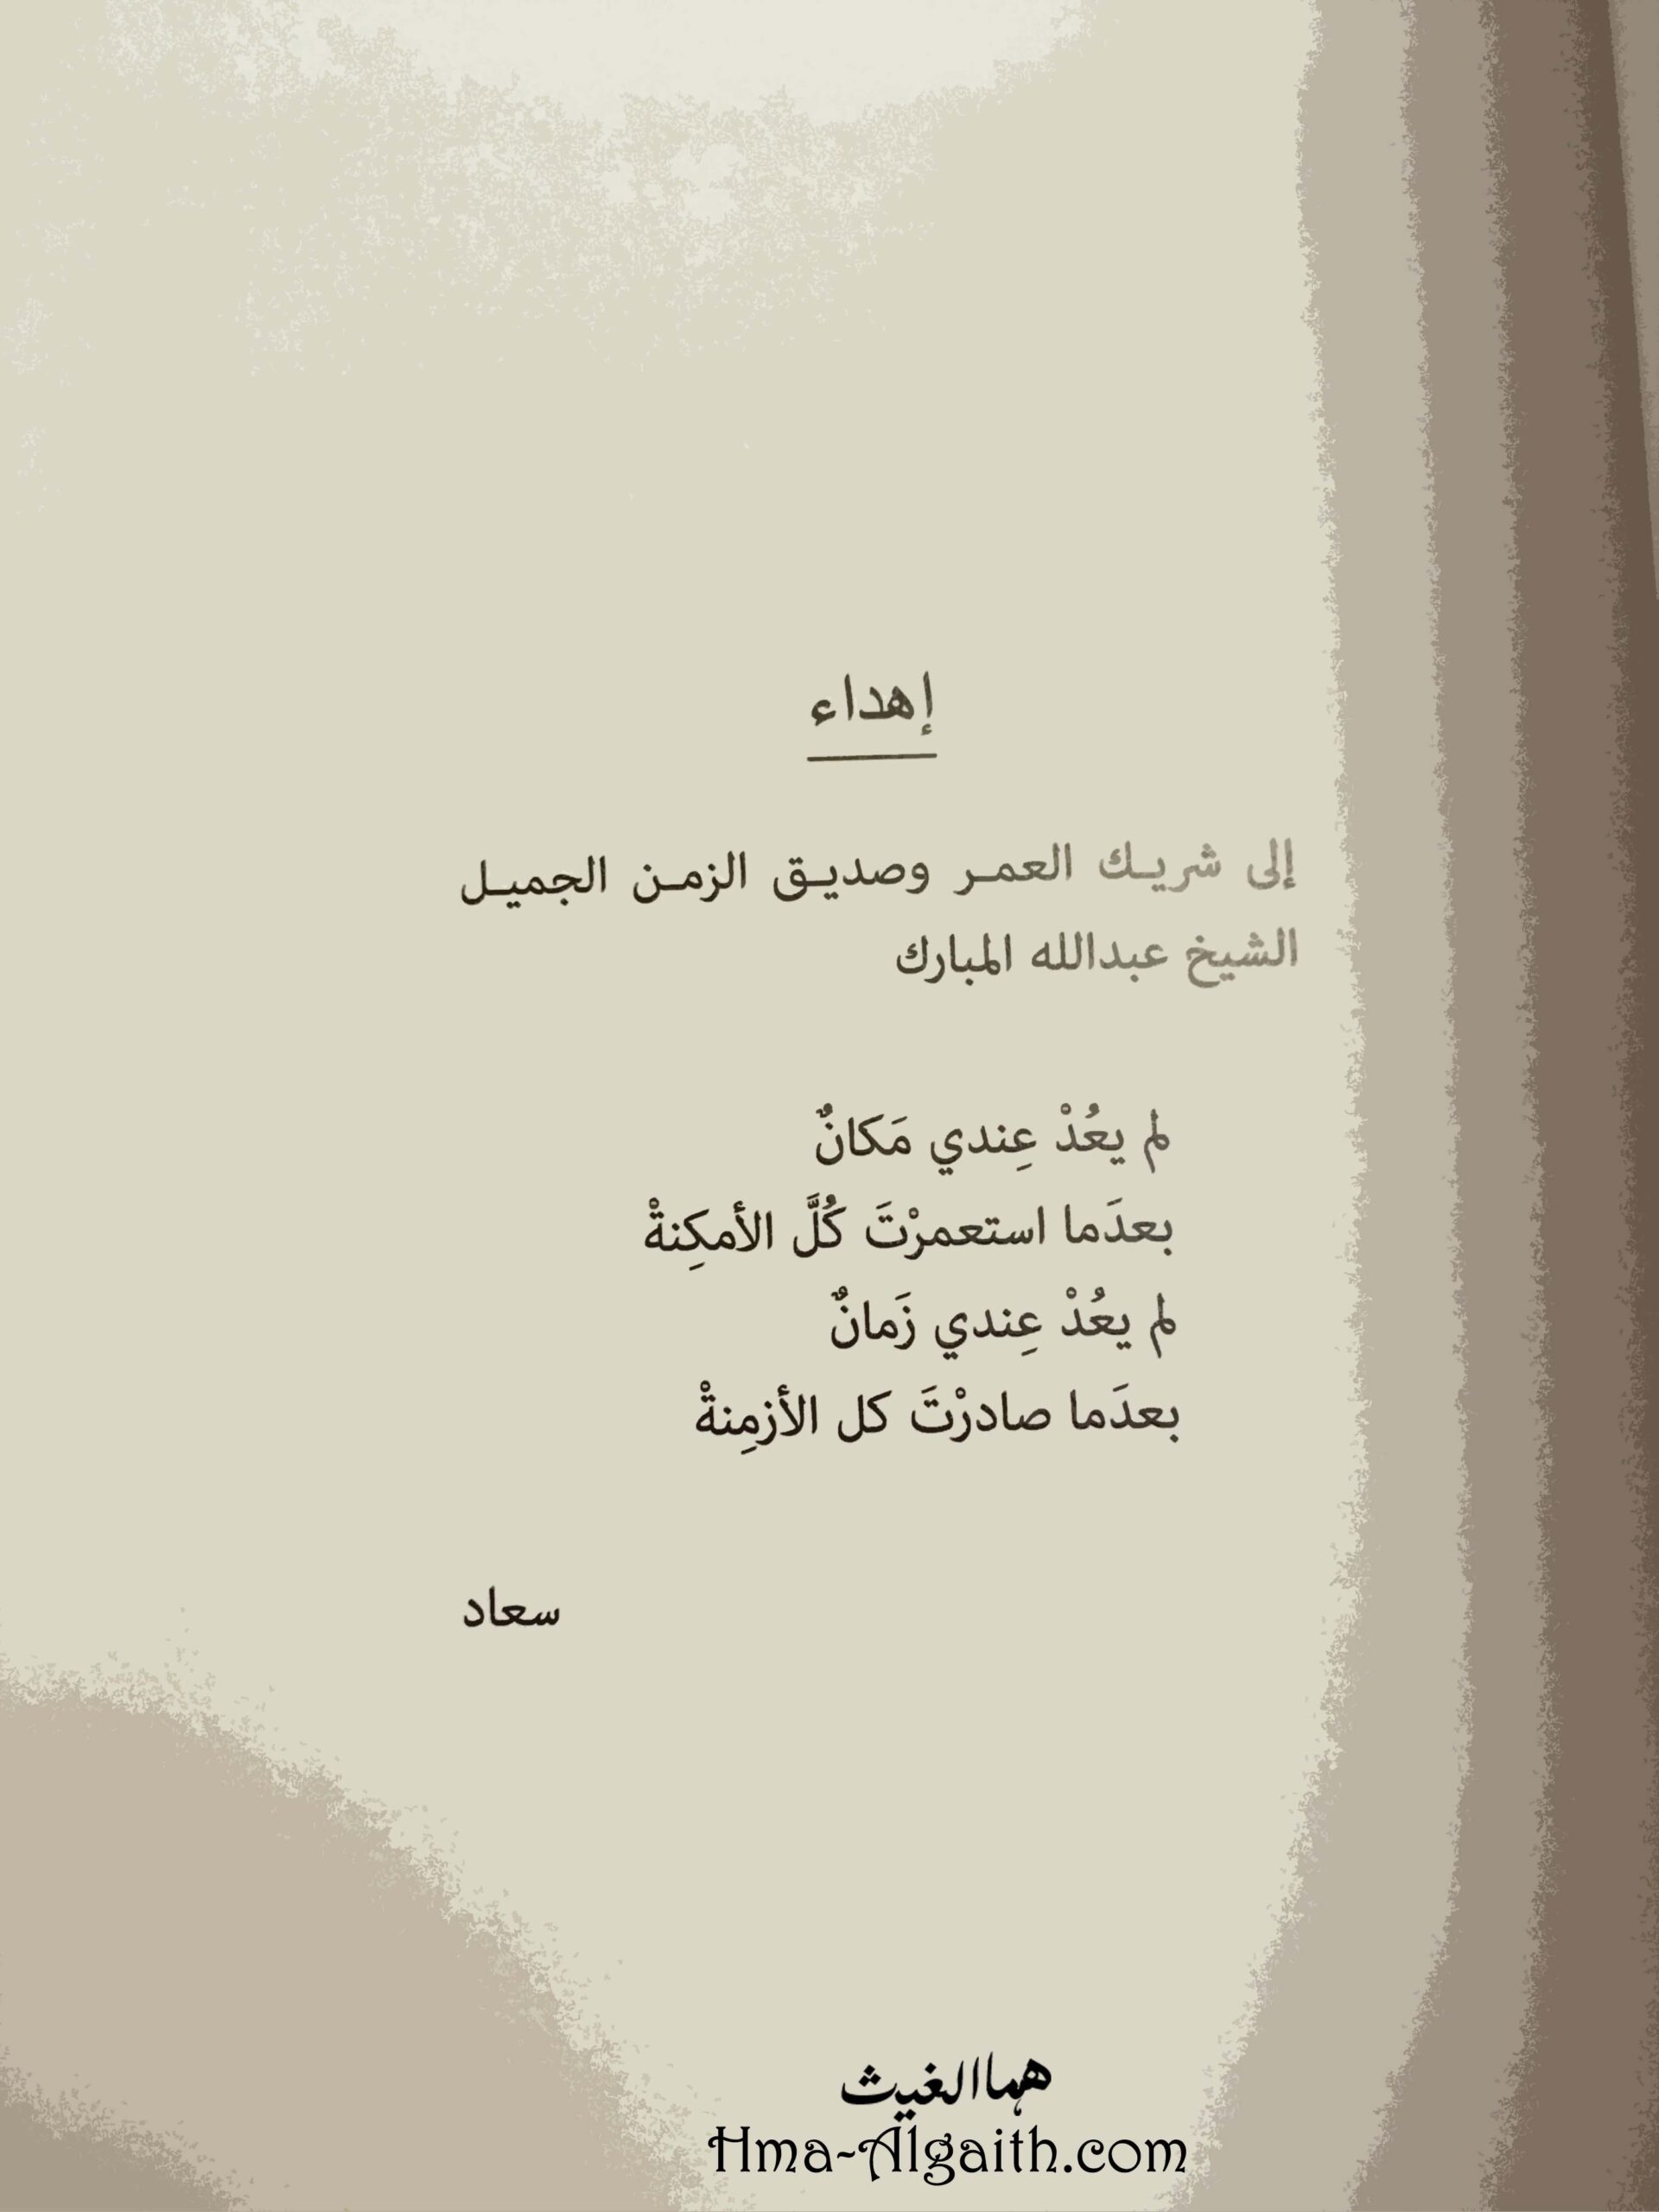 إهداء
إلى شريـك العمـر وصديـق الزمـن الجميـل
الشيخ عبدالله المبارك
لم يعُدْ عِندي مَكانٌ
بعدَما استعمرْتَ كُلَّ الأمكِنةْ
لم يعُدْ عِندي زَمانٌ
بعدَما صادرْتَ كل الأزمِنةْ
سعاد
هماالغيث
Hma-Algaith.com